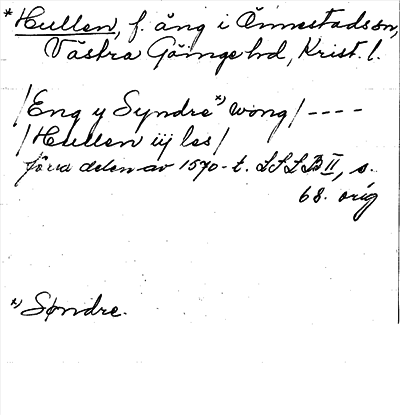 *Hullen, f. äng i Önnestads sn,
Västra Göinge hd, Krist. l.
/Eng y Syndre *) wong/----
/Hullen iij les/
förra delen av 1570-t. LSLB II, s.
68. orig
*) Søndre.